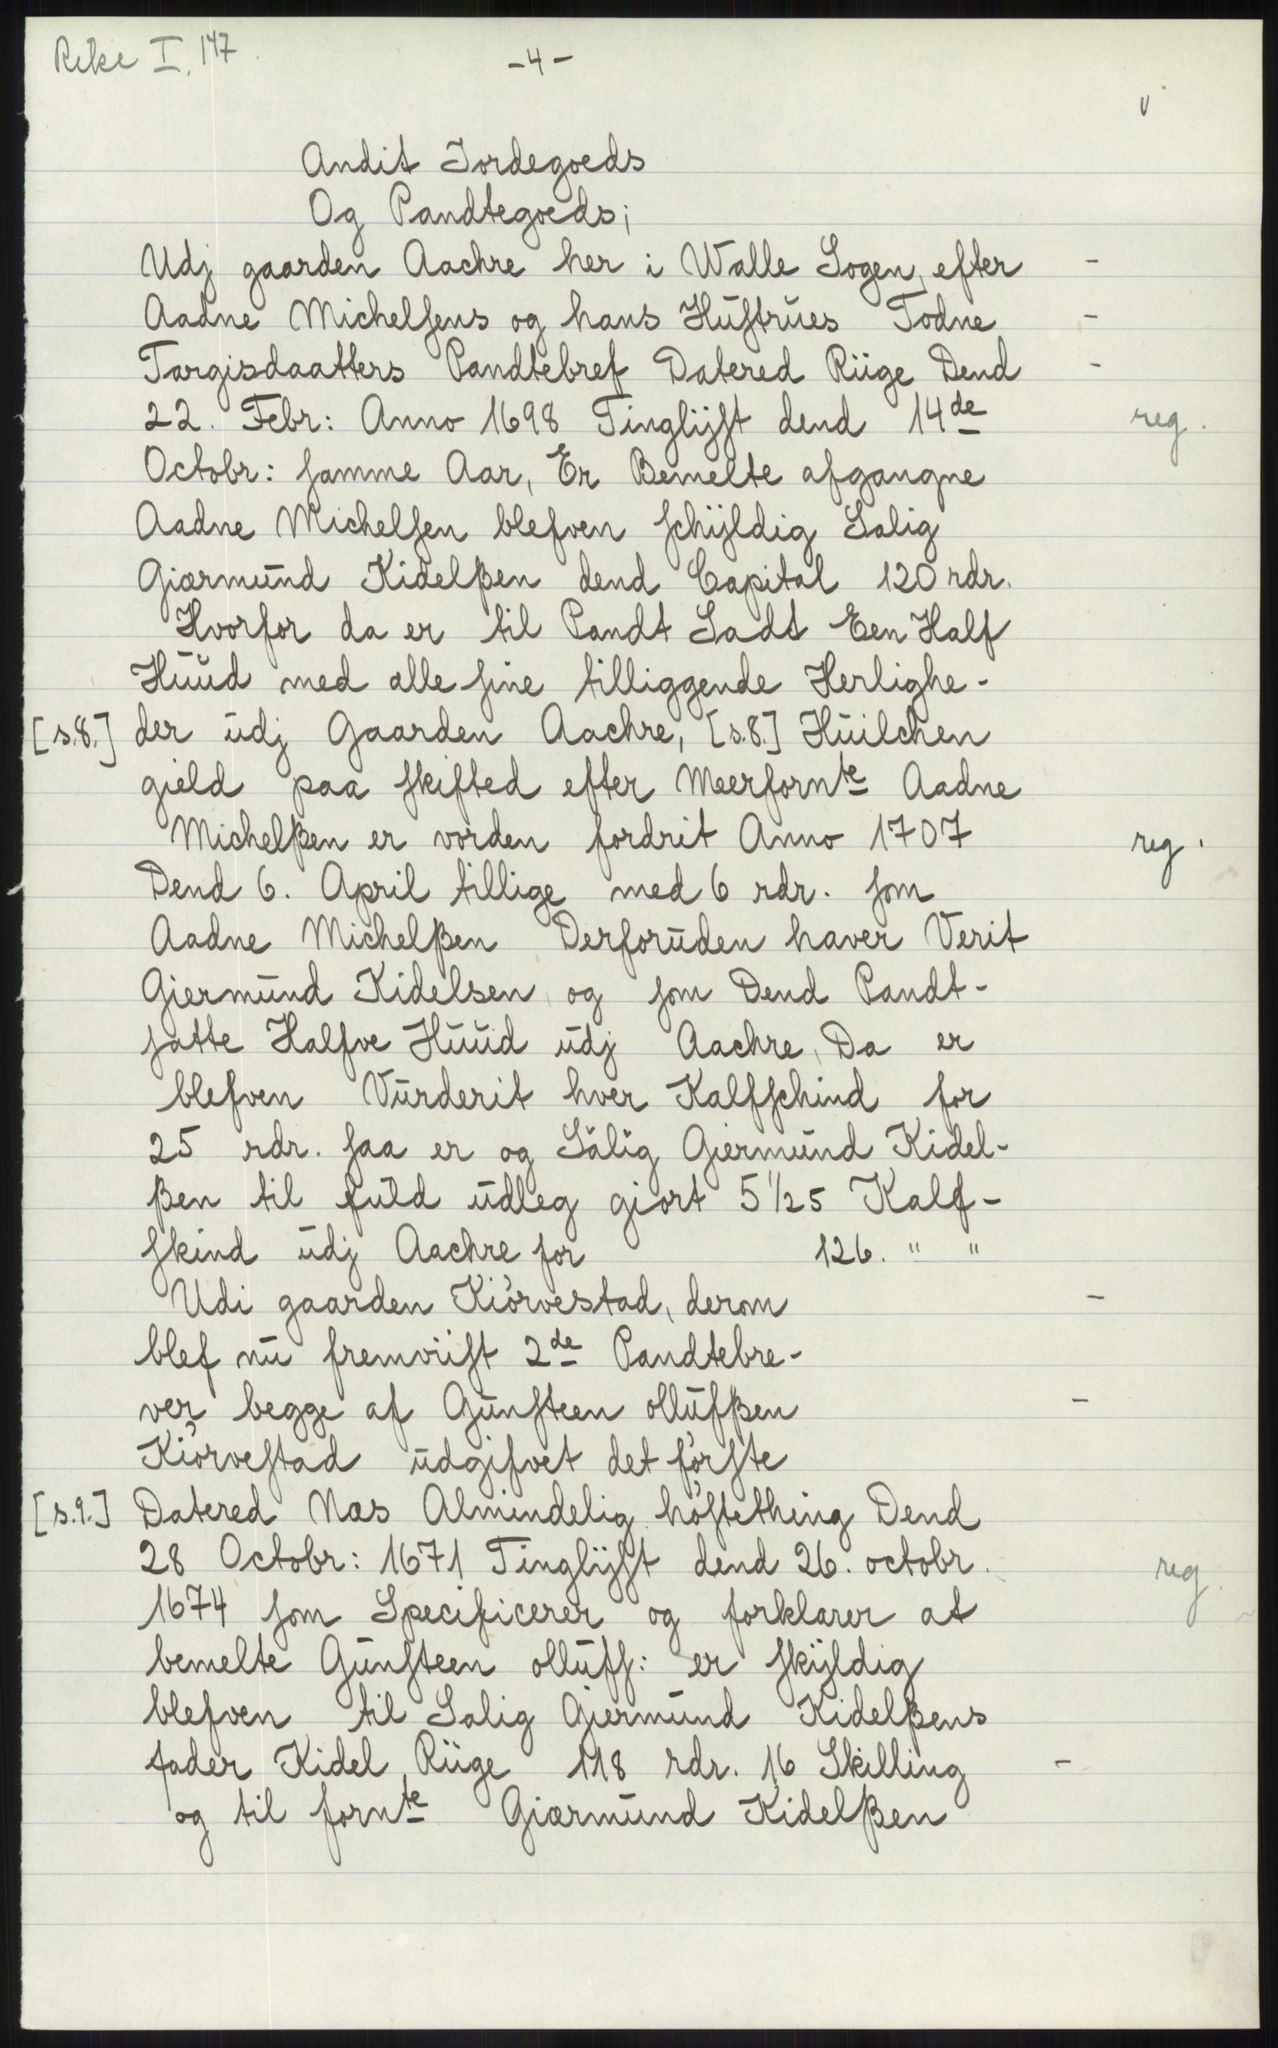 Rike I, 147.
- 4 -
v
Andit Jordegoeds
Og Pandtegoeds;
Udj gaarden Aachre her i Walle Sogen, efter -
Aadne Michelsens og hans Hustrues Todne -
Targisdaatters Pandtebref Datered Rüge Dend -
22. Febr: Anno 1698 Tinglÿst dend 14de reg.
Octobr: samme Aar, Er Bemelte afgangne
Aadne Michelsen blefven schÿldig Salig
Giærmund Kidelßen dend Capital 120 rdr.
Hvorfor da er til Pandt Sadt Een Half
Huud med alle sine tilliggende Herlighe-
[s.8.] der udj Gaarden Aachre, [s.8.] Huilchen
gield paa skifted efter Meerfornte Aadne
Michelßen er vorden fordrit Anno 1707 reg.
Dend 6. April tillige med 6 rdr. som
Aadne Michelßen Derforuden haver Verit
Giermund Kidelsen, og som Dend Pandt-
satte Halfve Huud udj Aachre, Da er
blefven Vurderit hver Kalfschind for
25 rdr. saa er og Sälig Giermund Kidel-
ßen til fuld udleg giort 5 1/25 Kalf-
skind udj Aachre for 126. " "
Udi gaarden Kiørvestad, derom -
blef nu fremviist 2de Pandtebre-
ver begge af Gunsteen ollufßen -
Kiørvestad udgifvet det første
[s.9.] Datered Næs Almindelig høstething Dend
28 Octobr: 1671 Tinglÿst dend 26. octobr. reg.
1674 som Specificerer og forklarer at
bemelte Gunsteen ollufs: er skÿldig
blefven til Salig Giermund Kidelßens
fader Kidel Rüge 118 rdr. 16 Skilling -
og til fornte Giærmund Kidelßen